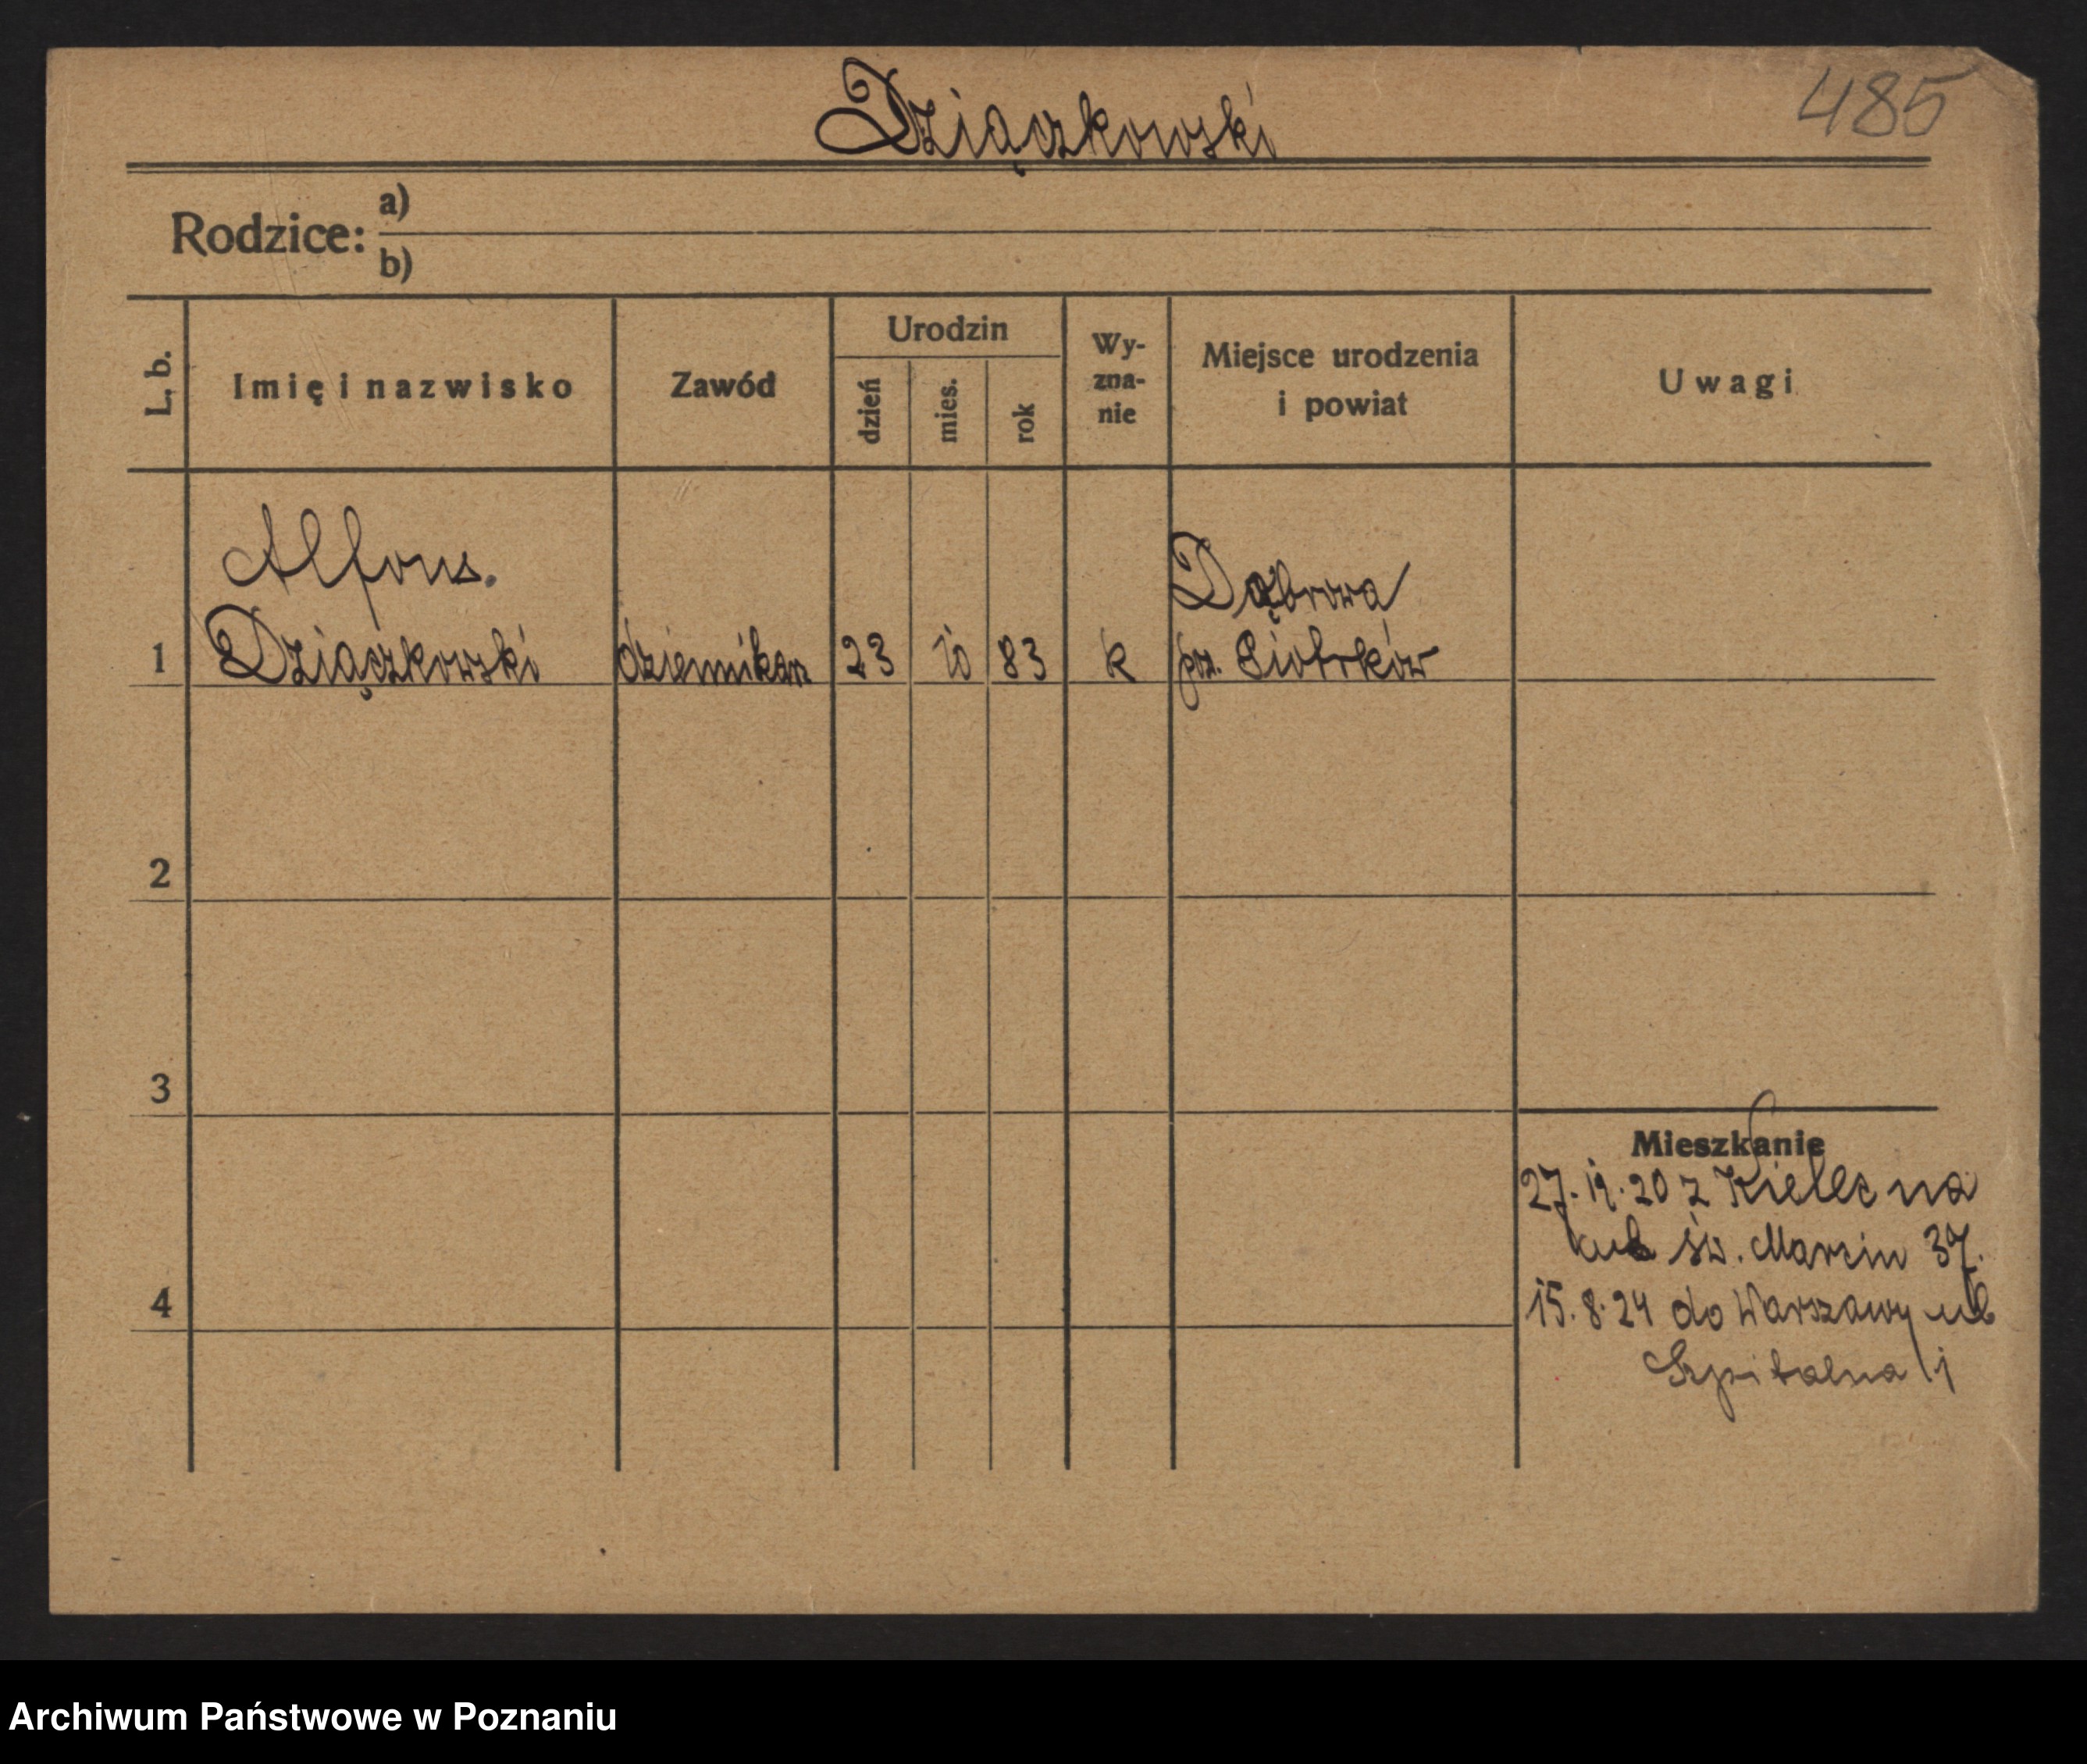 Dziączkowski
485
Rodzice: a)
b)
L. b.
Imię i nazwisko
Zawód
Urodzin
dzień
mies.
rok
Wy-
zna-
nie
Miejsce urodzenia
i powiat
Uwagi
Alfons.
Dąbrowa
1 Dziączkowski dziennikarz 23 10 83 k pow. Piotrków
2
3
4
Mieszkanie
27. 12. 20 z Kielec na
ul św. Marcin 37.
15. 8. 24 do Warszawy ul
Szpitalna 1
Archiwum Państwowe w Poznaniu